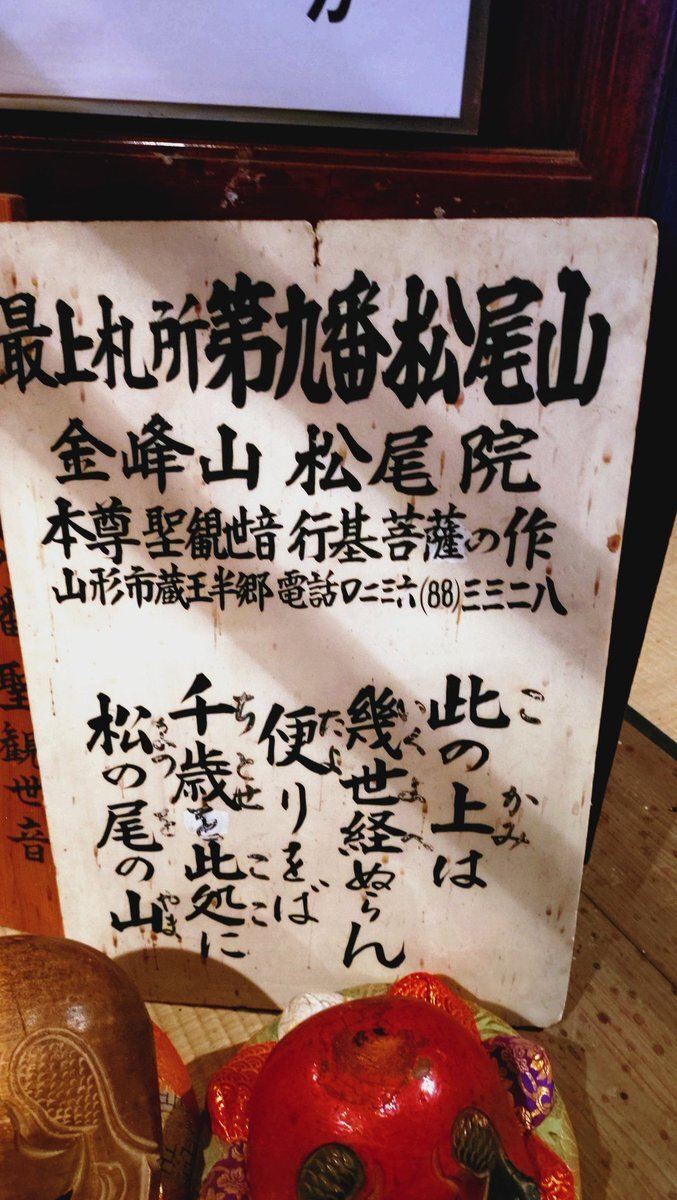 最上札所第九番松尾山
金峰山 松尾院
本尊聖観世音 行基菩薩の作
山形市蔵王半郷 電話〇二三六(88)三三二八
此の上は
こ かみ
幾世経ぬらん
いくよへ
便りをば
たよ
千歳を此処に
ちとせ ここ
松の尾の山
まつ を やま
番聖観世音